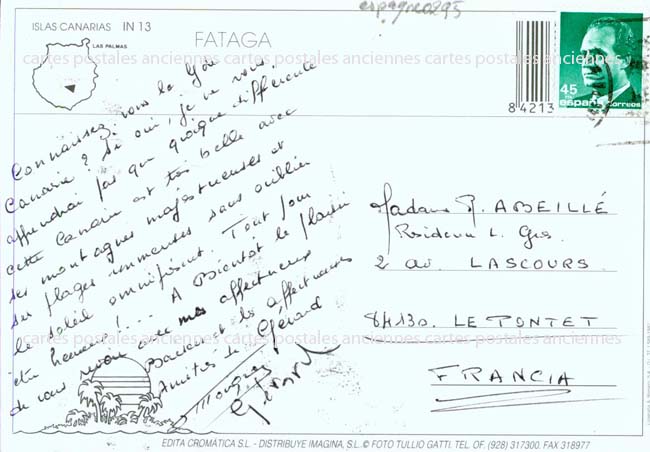 espagne0295
ISLAS CANARIAS IN 13
LAS PALMAS
FATAGA
cartes postales anciennes cartes postales anciennes cartes postales anciennes
84213
45
españa correos
Connaissez vous la
Canarie ? Si oui, je ne vous
apprendrai pas que quoique différente
cette Canarie est très belle avec
ses montagnes majestueuses et
ses plages immenses sans oublier
le soleil omniprésent. Tout pour
être heureux !... A Bientôt le plaisir
de vous revoir mes affectueux
Baisers et les affectueuses
Amitiés de Gérard
Gérard
Madame R. ABEILLÉ
2 av. LASCOURS
84130. LE PONTET
FRANCIA
cartes postales anciennes cartes postales anciennes cartes postales anciennes
EDITA CROMÁTICA S.L. - DISTRIBUYE IMAGINA, S.L. © FOTO TULLIO GATTI. TEL. OF. (928) 317300. FAX 318977